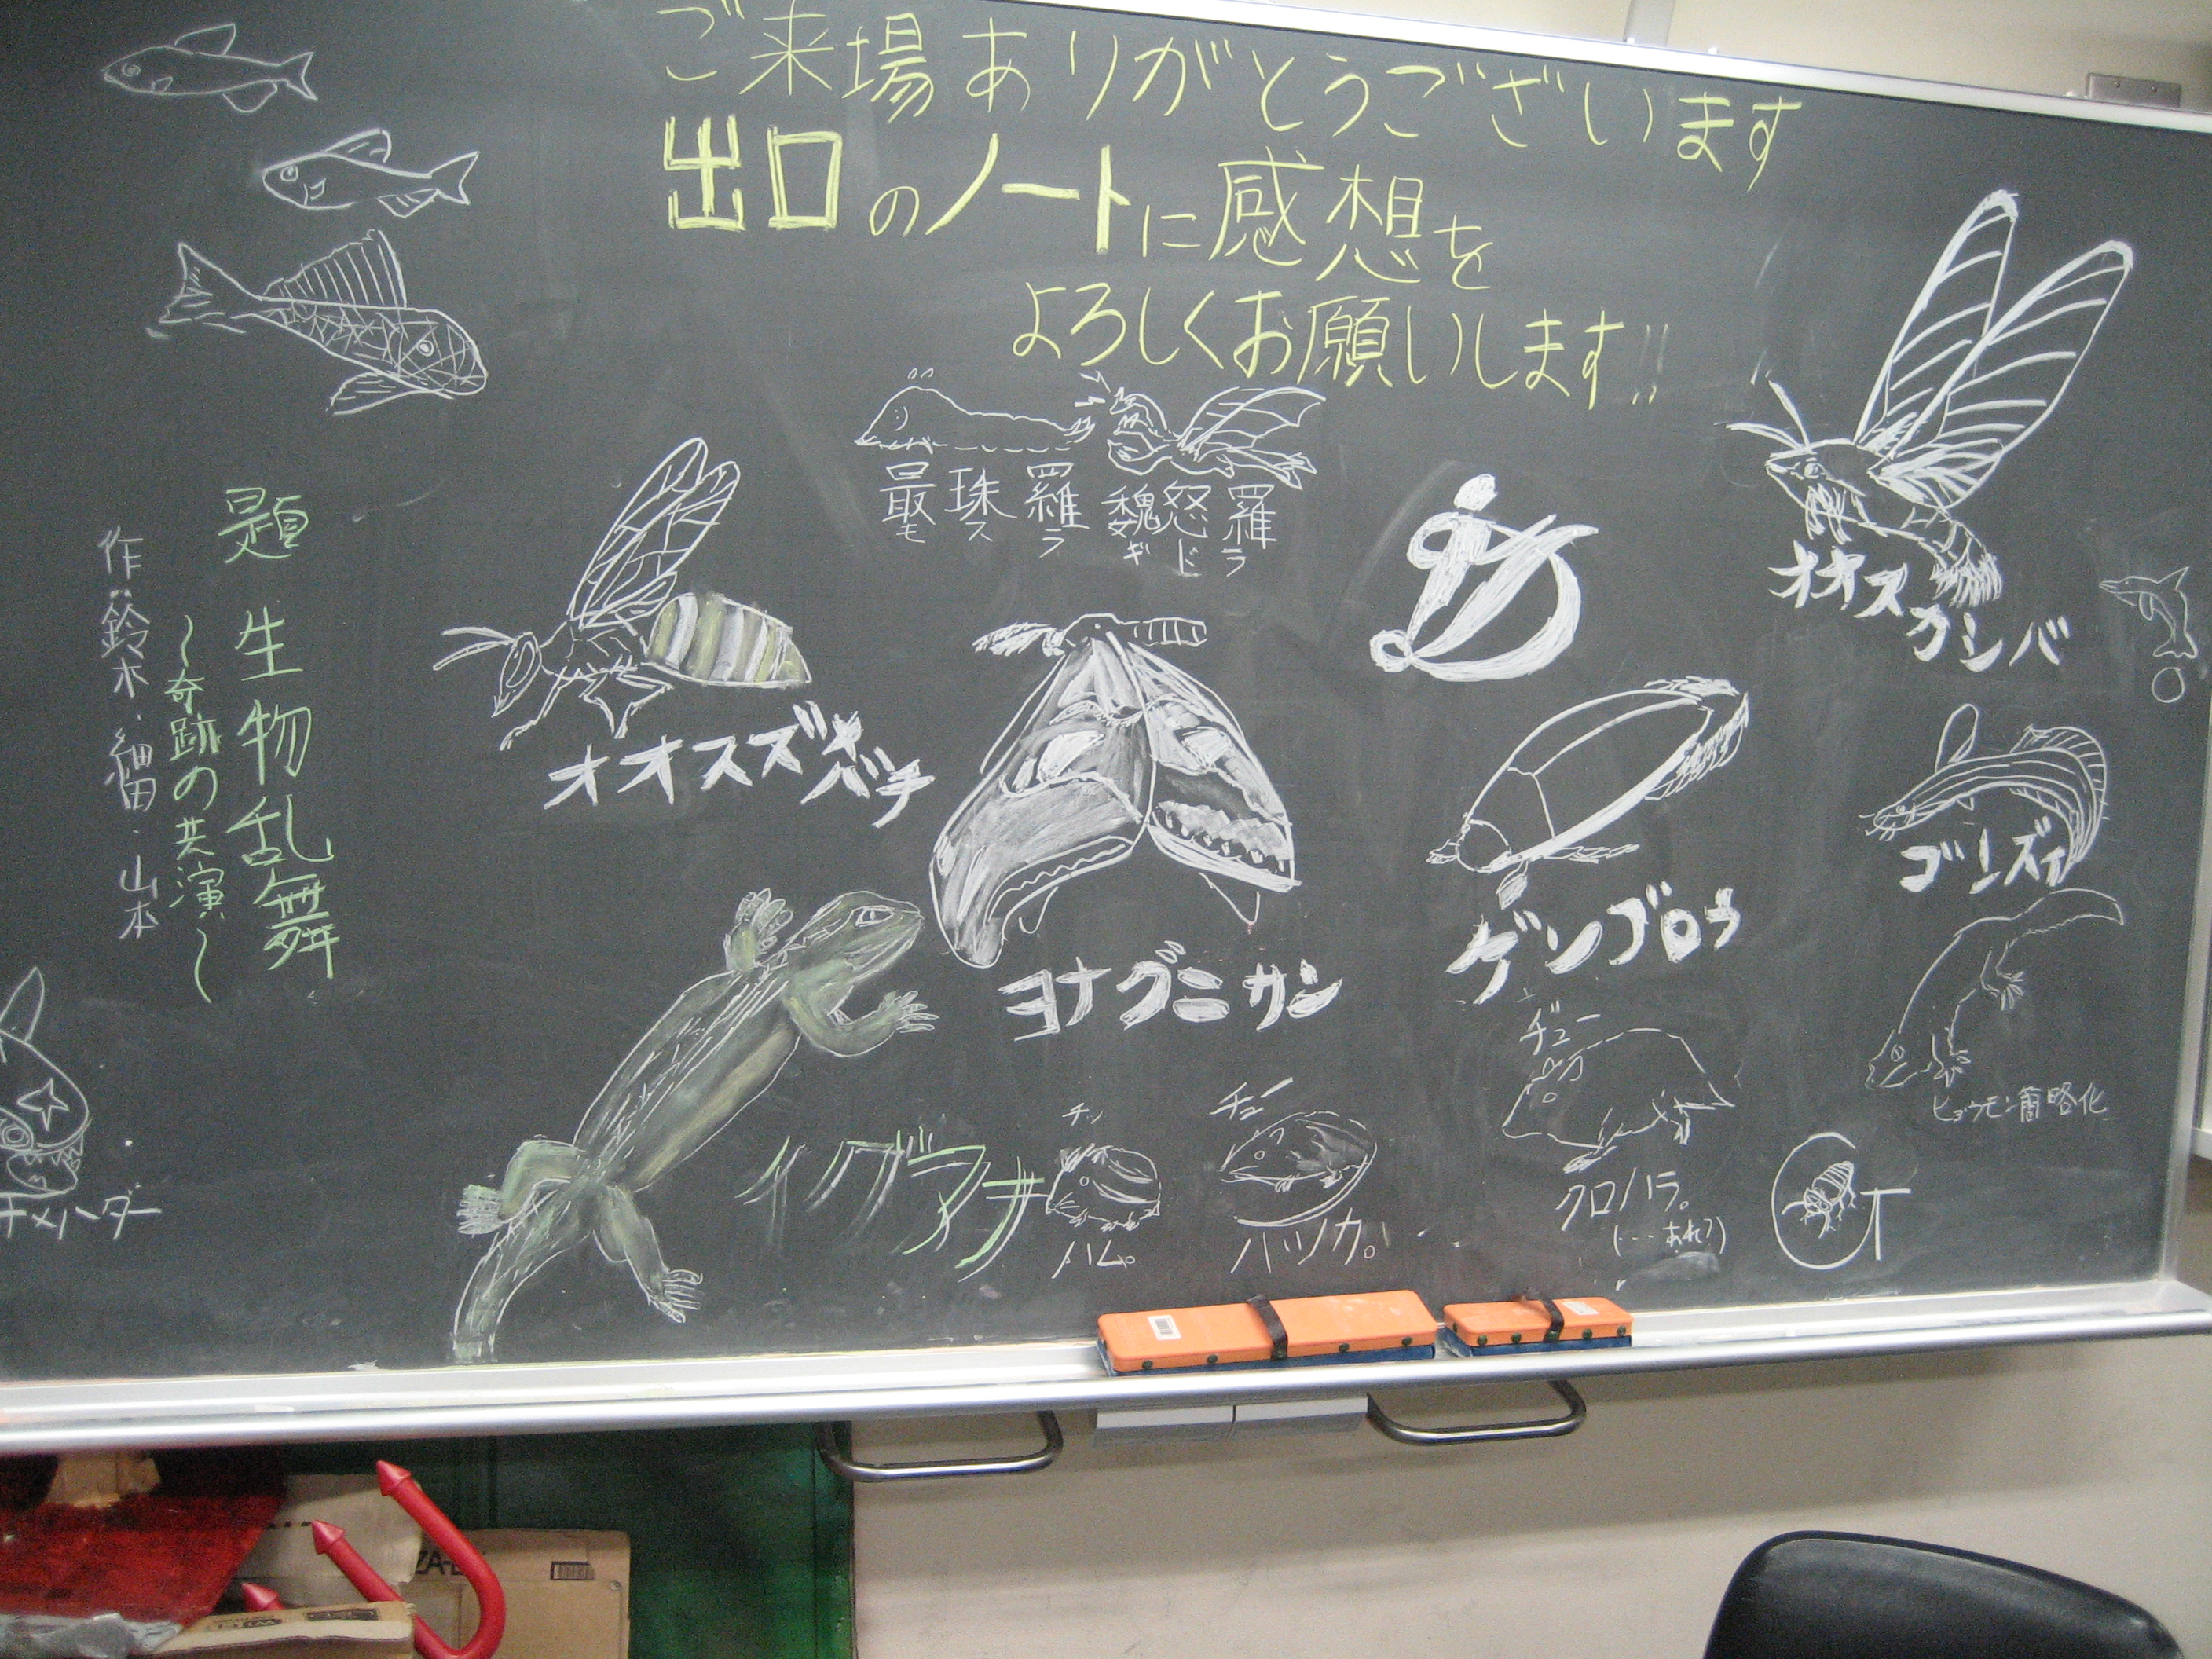 ご来場ありがとうございます
出口のノートに感想を
よろしくお願いします!!
題 生物乱舞
～奇跡の共演～
作:鈴木・細田・山本
最珠羅
モスラ
魏怒羅
ギドラ
オオスズメバチ
オオスカシバ
ヨナグニサン
ゲンゴロウ
ゴンズイ
ヒョウモン簡略化
イグアナ
チュー
チュー
ハム。
ハツカ。
クロハラ。
(…あれ?)
T